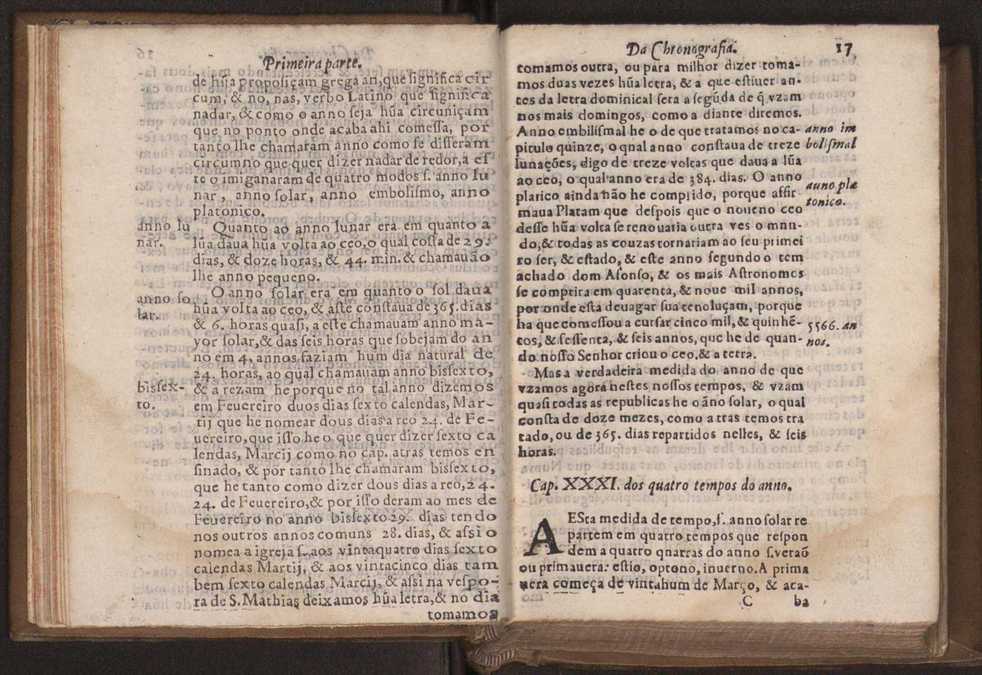 Primeira parte.
de hũa proposiçam grega an, que significa cir
cum, & no, nas, verbo Latino que significa
nadar, & como o anno seja hũa circuniçam
que no ponto onde acaba ahi comessa, por
tanto lhe chamaram anno como se disseram
circumno que quer dizer nadar de redor, a es
te o imiganaram de quatro modos s. anno lu
nar, anno solar, anno embolismo, anno
platonico.
anno lu
nar.
Quanto ao anno lunar era em quanto a
lũa daua hũa volta ao ceo, o qual cossa de 29.
dias, & doze horas, & 44. min. & chamauão
lhe anno pequeno.
anno so
lar.
O anno solar era em quanto o sol daua
hũa volta ao ceo, & aste constaua de 365. dias
& 6. horas quasi, a este chamauam anno ma-
yor solar, & das seis horas que sobejam do an
no em 4, annos faziam hum dia natural de
24. horas, ao qual chamauam anno bissexto,
bissex-
to.
& a rezam he porque no tal anno dizemos
em Feuereiro duos dias sexto calendas, Mar-
tij que he nomear dous dias a reo 24. de Fe-
uereiro, que isso he o que quer dizer sexto ca
lendas, Marcij como no cap. atras temos en
sinado, & por tanto lhe chamaram bissexto,
que he tanto como dizer dous dias a reo, 24.
24. de Feuereiro, & por isso deram ao mes de
Feuereiro no anno bissexto 29. dias tendo
nos outros annos comuns 28. dias, & assi o
nomea a igreja s. aos vintaquatro dias sexto
calendas Martij, & aos vintacinco dias tam
bem sexto calendas Marcij, & assi na vespo-
ra de S. Mathias deixamos hũa letra, & no dia
tomamos
Da Chronografia. 17
tomamos outra, ou para milhor dizer toma-
mos duas vezes hũa letra, & a que estiuer an-
tes da letra dominical sera a segũda de q̃ vzam
nos mais domingos, como a diante diremos.
Anno embilismal he o de que tratamos no ca-
pitulo quinze, o qnal anno constaua de treze
lunações, digo de treze voltas que daua a lũa
ao ceo, o qual anno era de 384. dias. O anno
anno im
bolismal
plarico ainda não he comprido, porque affir
maua Platam que despois que o noueno ceo
auno pla
tonico.
desse hũa volta se renouatia outra ves o mun-
do, & todas as couzas tornariam ao seu primei
ro ser, & estado, & este anno segundo o tem
achado dom Afonso, & os mais Astronomos
se comprira em quarenta, & noue mil annos,
por onde está deuagar sua reuoluçam, porque
ha que comessou a cursar cinco mil, & quinhẽ-
tos, & sessenta, & seis annos, que he de quan-
do nosso Senhor criou o ceo, & a terra.
5566. an
nos.
Mas a verdadeira medida do anno de que
vzamos agora nestes nossos tempos, & vzam
quasi todas as republicas he o ãno solar, o qual
consta de doze mezes, como a tras temos tra
tado, ou de 365. dias repartidos nelles, & seis
horas.
Cap. XXXI. dos quatro tempos do anno.
AESta medida de tempo, s. anno solar re
partem em quatro tempos que respon
dem a quatro quartas do anno s. veraõ
ou primauera: estio, optono, inuerno. A prima
uera começa de vintahum de Março, & aca-
C ba